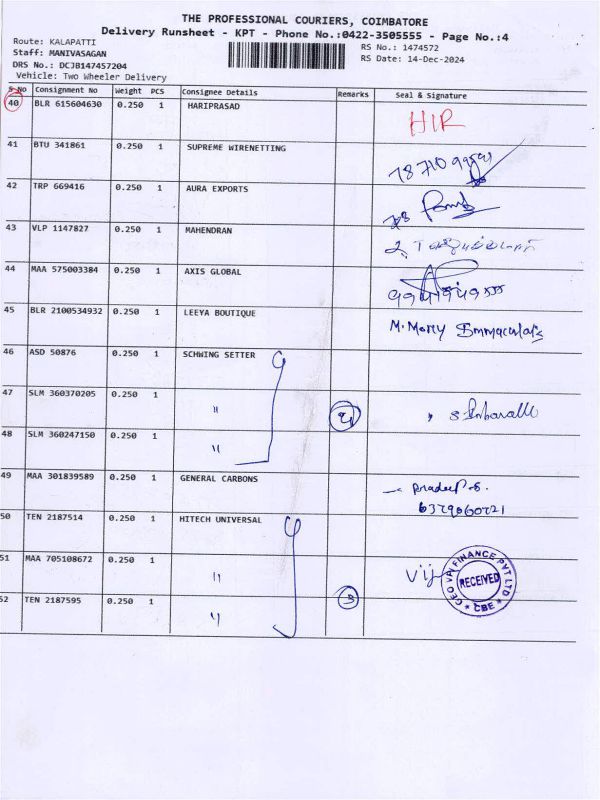 THE PROFESSIONAL COURIERS, COIMBATORE
Delivery Runsheet - KPT - Phone No.:0422-3505555 - Page No.:4
Route: KALAPATTI
RS No.: 1474572
Staff: MANIVASAGAN
RS Date: 14-Dec-2024
DRS No.: DCJB147457204
Vehicle: Two Wheeler Delivery
S No Consignment No Weight PCS Consignee Details Remarks Seal & Signature
40 BLR 615604630 0.250 1 HARIPRASAD HIR
41 BTU 341861 0.250 1 SUPREME WIRENETTING
42 TRP 669416 0.250 1 AURA EXPORTS
43 VLP 1147827 0.250 1 MAHENDRAN
44 MAA 575003384 0.250 1 AXIS GLOBAL
45 BLR 2100534932 0.250 1 LEEYA BOUTIQUE M. Mary Immaculate
46 ASD 50876 0.250 1 SCHWING SETTER
47 SLM 360370205 0.250 1 "
48 SLM 360247150 0.250 1 "
49 MAA 301839589 0.250 1 GENERAL CARBONS Pradeep.S.
6379060721
50 TEN 2187514 0.250 1 HITECH UNIVERSAL
51 MAA 705108672 0.250 1 " Vij
CEO VPI FINANCE PVT LTD
RECEIVED
* CBE *
52 TEN 2187595 0.250 1 " 3